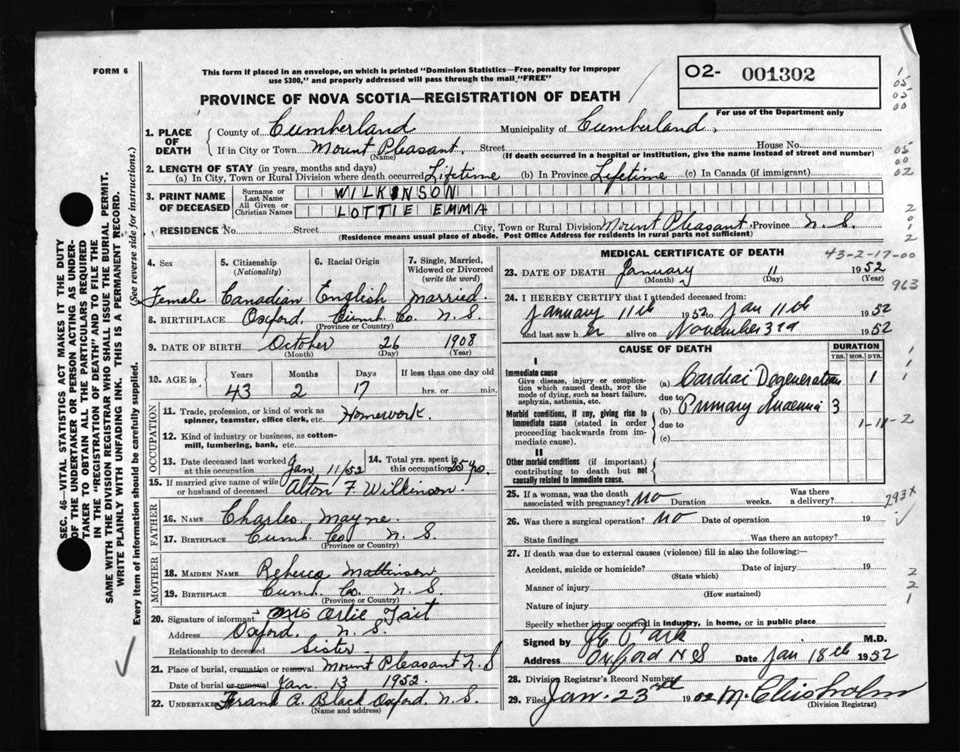 FORM 6
This form if placed in an envelope, on which is printed "Dominion Statistics—Free, penalty for improper
use $300," and properly addressed will pass through the mail "FREE"
O2- 001302
For use of the Department only
PROVINCE OF NOVA SCOTIA—REGISTRATION OF DEATH
1. PLACE OF DEATH
County of Cumberland Municipality of Cumberland,
If in City or Town Mount Pleasant. Street House No.
(Name) (If death occurred in a hospital or institution, give the name instead of street and number)
2. LENGTH OF STAY (in years, months and days)
(a) In City, Town or Rural Division where death occurred Lifetime (b) In Province Lifetime (c) In Canada (if immigrant)
3. PRINT NAME OF DECEASED
Surname or Last Name WILKINSON
All Given or Christian Names LOTTIE EMMA
RESIDENCE No. Street City, Town or Rural Division Mount Pleasant, Province N.S.
(Residence means usual place of abode. Post Office Address for residents in rural parts not sufficient)
4. Sex
Female
5. Citizenship (Nationality)
Canadian
6. Racial Origin
English
7. Single, Married, Widowed or Divorced (write the word)
married.
8. BIRTHPLACE Oxford, Cumb. Co. N.S.
(Province or Country)
9. DATE OF BIRTH October 26 1908
(Month) (Day) (Year)
10. AGE in Years Months Days If less than one day old
43 2 17 hrs. or min.
OCCUPATION
11. Trade, profession, or kind of work as spinner, teamster, office clerk, etc. Homework.
12. Kind of industry or business, as cotton-mill, lumbering, bank, etc.
13. Date deceased last worked at this occupation Jan 11/52
14. Total yrs. spent in this occupation 25 yrs.
15. If married give name of wife or husband of deceased Alton F. Wilkinson.
FATHER
16. NAME Charles Mayne.
17. BIRTHPLACE Cumb. Co N.S.
(Province or Country)
MOTHER
18. MAIDEN NAME Rebecca Mattinson
19. BIRTHPLACE Cumb. Co. N.S.
(Province or Country)
20. Signature of informant Mrs Arlie Tait
Address Oxford, N.S.
Relationship to deceased Sister.
21. Place of burial, cremation or removal Mount Pleasant N.S
Date of burial or removal Jan. 13 1952.
22. UNDERTAKER Frank A. Black Oxford, N.S.
(Name and address)
MEDICAL CERTIFICATE OF DEATH
43-2-17-00
23. DATE OF DEATH January 11 1952
(Month) (Day) (Year)
24. I HEREBY CERTIFY that I attended deceased from:
January 11th 1952 to Jan 11th 1952
and last saw her alive on November 3rd 1952
CAUSE OF DEATH
DURATION
YRS. MOS. DYS.
I
Immediate cause
Give disease, injury or complication which caused death, NOT the mode of dying, such as heart failure, asphyxia, asthenia, etc.
(a) Cardiac Degeneration 1
due to
Morbid conditions, if any, giving rise to immediate cause (stated in order proceeding backwards from immediate cause).
(b) Primary Anaemia 3
due to
(c)
II
Other morbid conditions (if important) contributing to death but NO causally related to immediate cause.
25. If a woman, was the death associated with pregnancy? no Duration weeks. Was there a delivery?
26. Was there a surgical operation? no Date of operation 19
State findings Was there an autopsy?
27. If death was due to external causes (violence) fill in also the following:—
Accident, suicide or homicide? Date of injury 19
(State which)
Manner of injury
(How sustained)
Nature of injury
Specify whether injury occurred in industry, in home, or in public place
Signed by Park M.D.
Address Oxford N S Date Jan 18th 1952
28. Division Registrar's Record Number
29. Filed Jan. 23rd 1952 M. Chisholm
(Division Registrar)
SEC. 46—VITAL STATISTICS ACT MAKES IT THE DUTY
OF THE UNDERTAKER OR PERSON ACTING AS UNDER-
TAKER TO OBTAIN ALL THE PARTICULARS REQUIRED
IN THE "REGISTRATION OF DEATH" AND TO FILE THE
SAME WITH THE DIVISION REGISTRAR WHO SHALL ISSUE THE BURIAL PERMIT.
WRITE PLAINLY WITH UNFADING INK. THIS IS A PERMANENT RECORD.
Every item of information should be carefully supplied. (See reverse side for instructions.)
1
05
05
00
05
00
02
2
0
1
2
963
1
1
1
2
293x
2
2
1